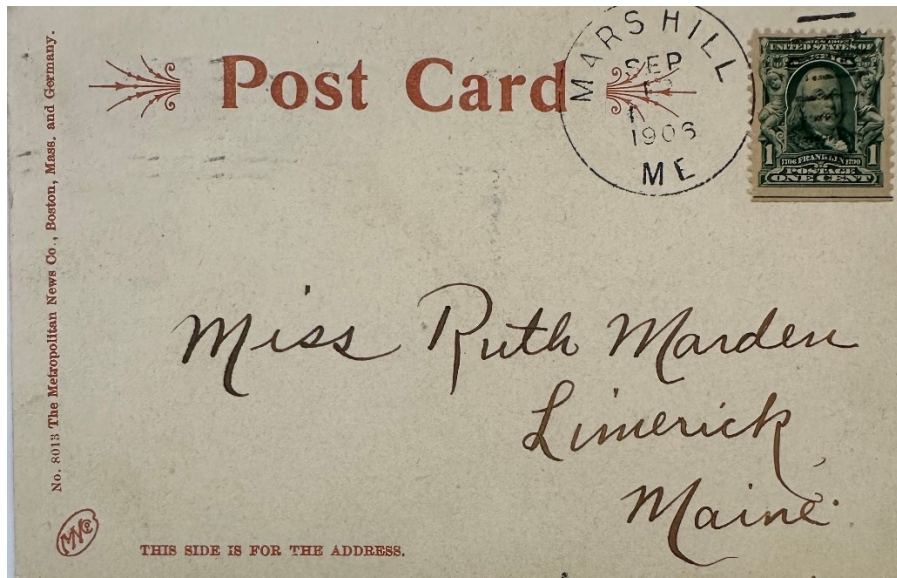 No. 8013 The Metropolitan News Co., Boston, Mass. and Germany.
Post Card
MARS HILL
SEP
1906
ME
UNITED STATES OF
1706 FRANKLIN 1790
1 1
POSTAGE
ONE CENT
Miss Ruth Marden
Limerick
Maine.
MNCo
THIS SIDE IS FOR THE ADDRESS.